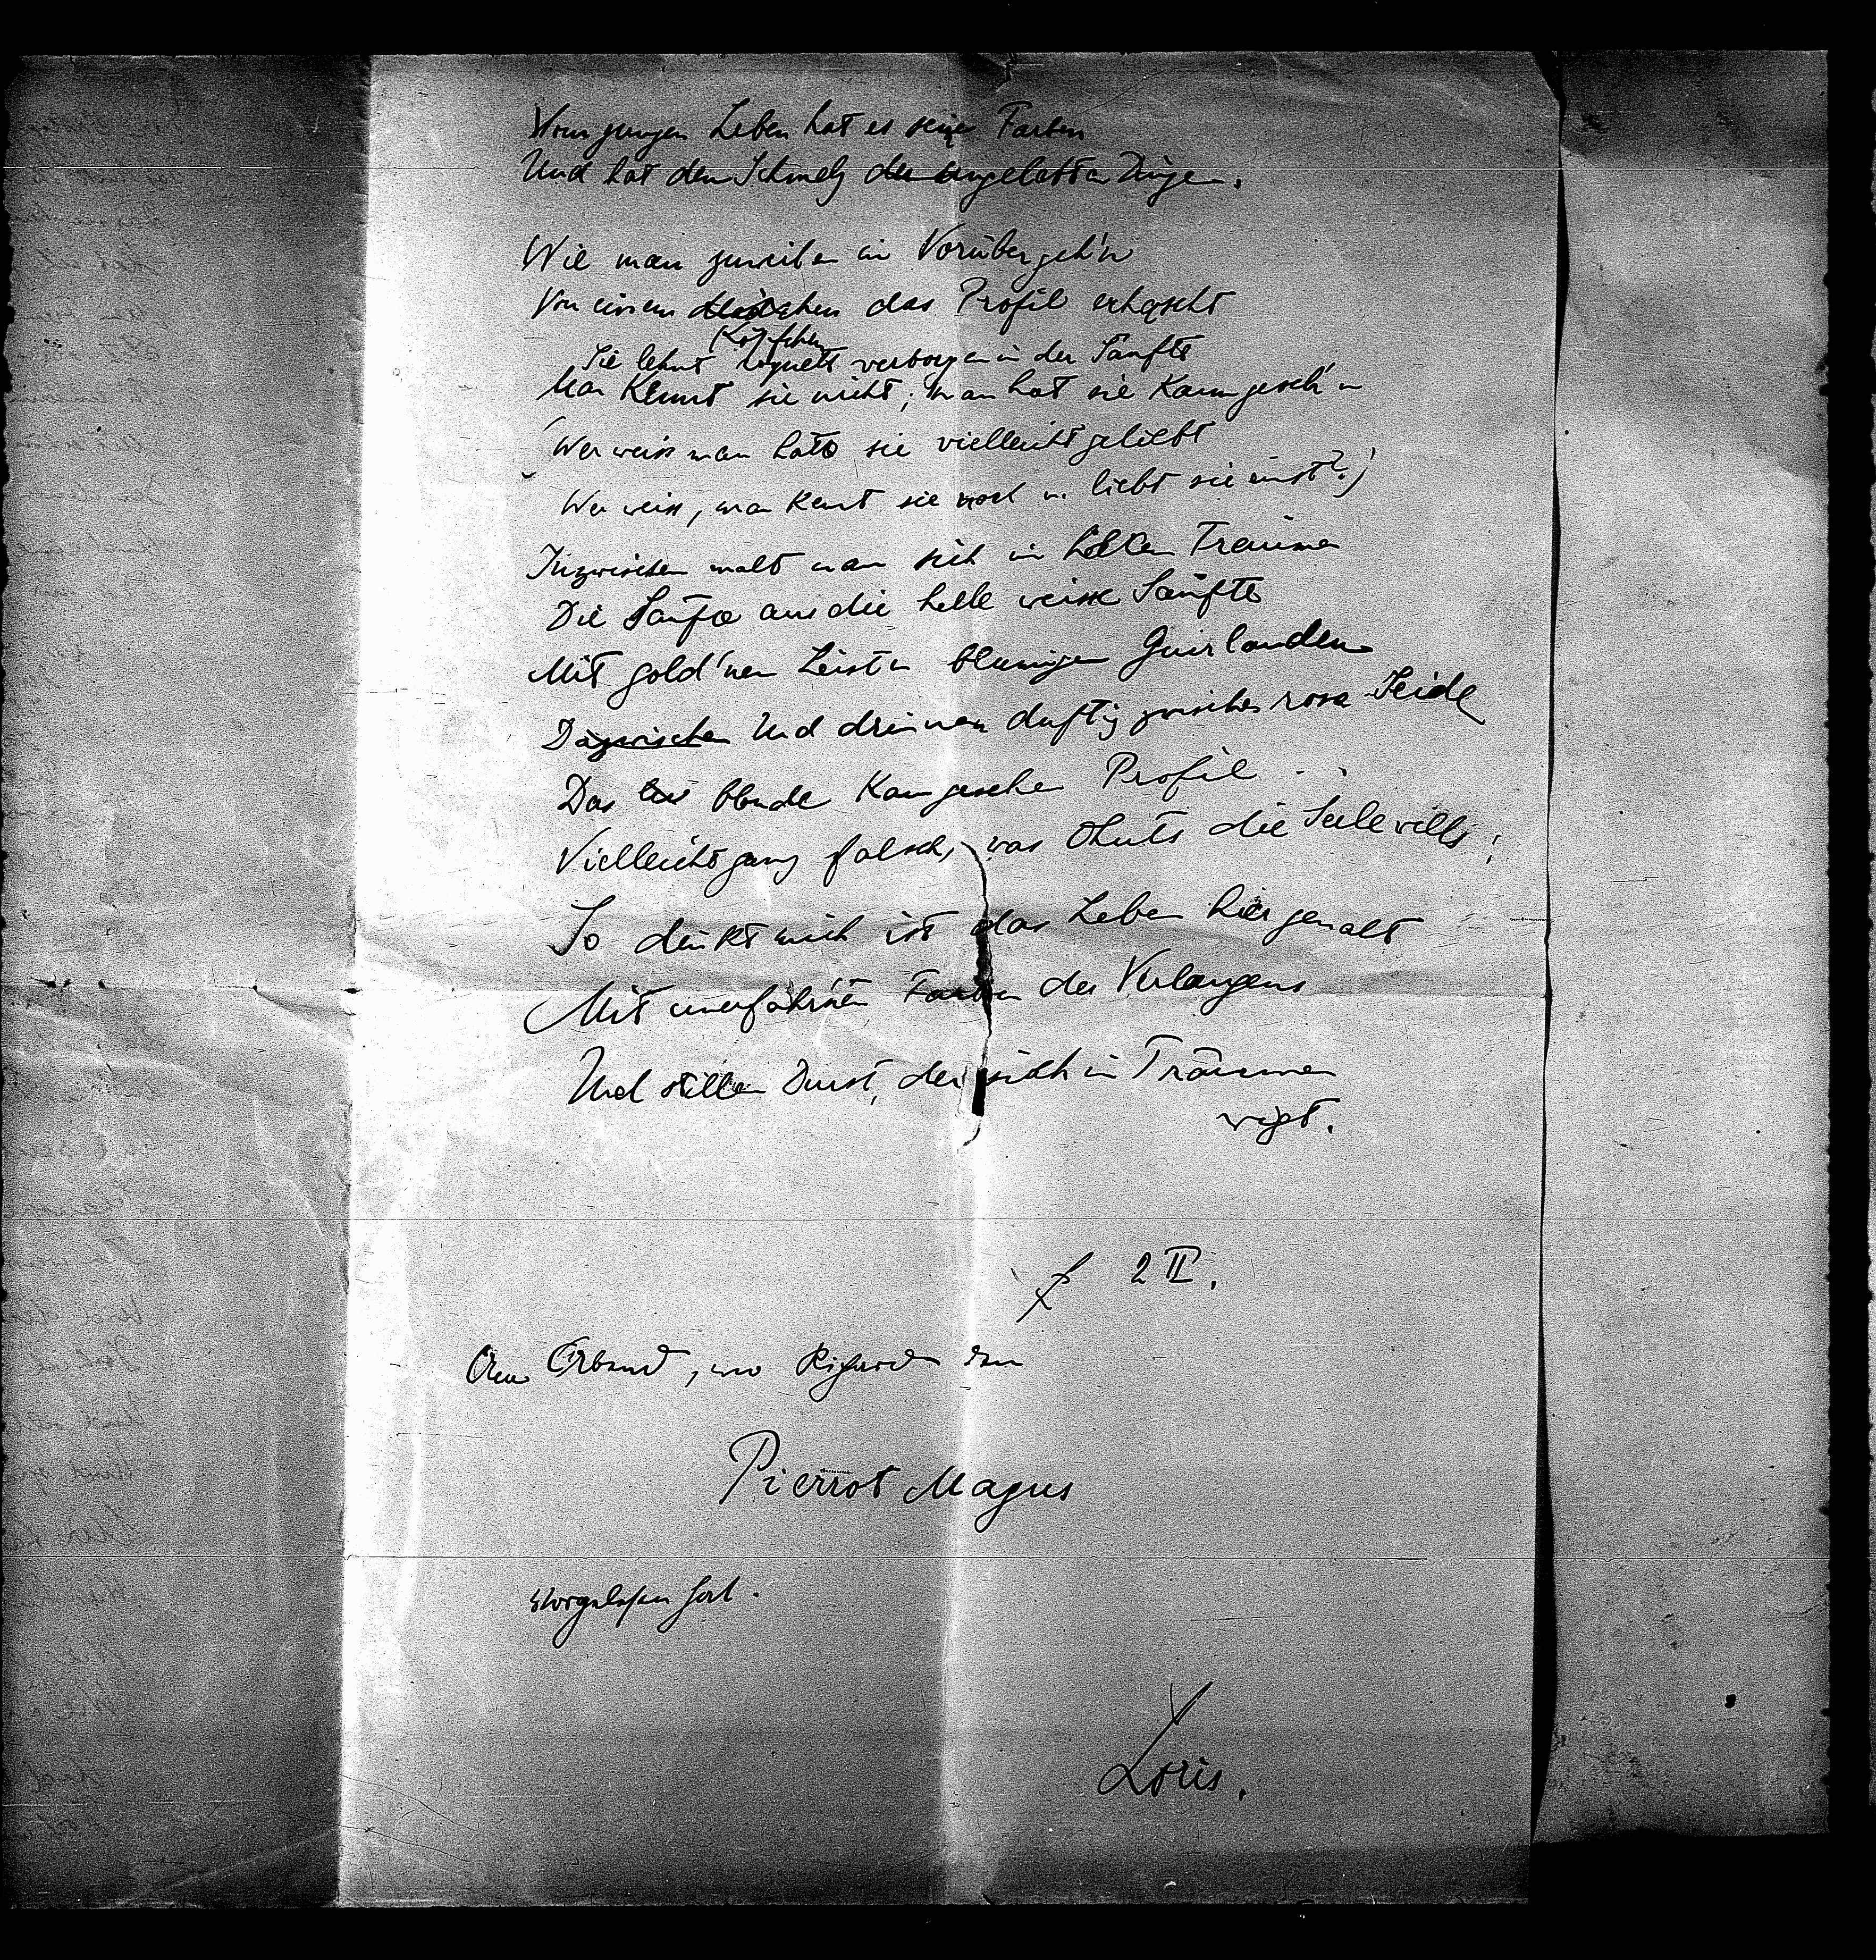 Vom jungen Leben hat es seine Farben
Und hat den Schmelz der ungelebten Dinge.
Wie man zuweilen im Vorübergeh'n
Von einem Mädchen das Profil erhascht
Köpfchen
Sie lehnt coquett verborgen in der Sänfte
Man kennt sie nicht; man hat sie kaum geseh'n
(Wer weiss man hätte sie vielleicht geliebt
Wer weiss, man kennt sie noch u. liebt sie einst?)
Inzwischen malt man sich in hellen Träumen
Die Sänfte aus die helle weisse Sänfte
Mit gold'nen Leisten blumigen Guirlanden
Dazwischen Und drinnen duftig zwischen rosa Seide
Das blonde kaum gesehene Profil . .
Vielleicht ganz falsch, was thuts die Seele wills;
So dünkt mich ist das Leben hier gemalt
Mit unerfahrnen Farben des Verlangens
Und stillem Durst, der sich in Träumen
wiegt.
2 II.
Am Abend, wo Richard den
Pierrot Magus
vorgelesen hat.
Loris.